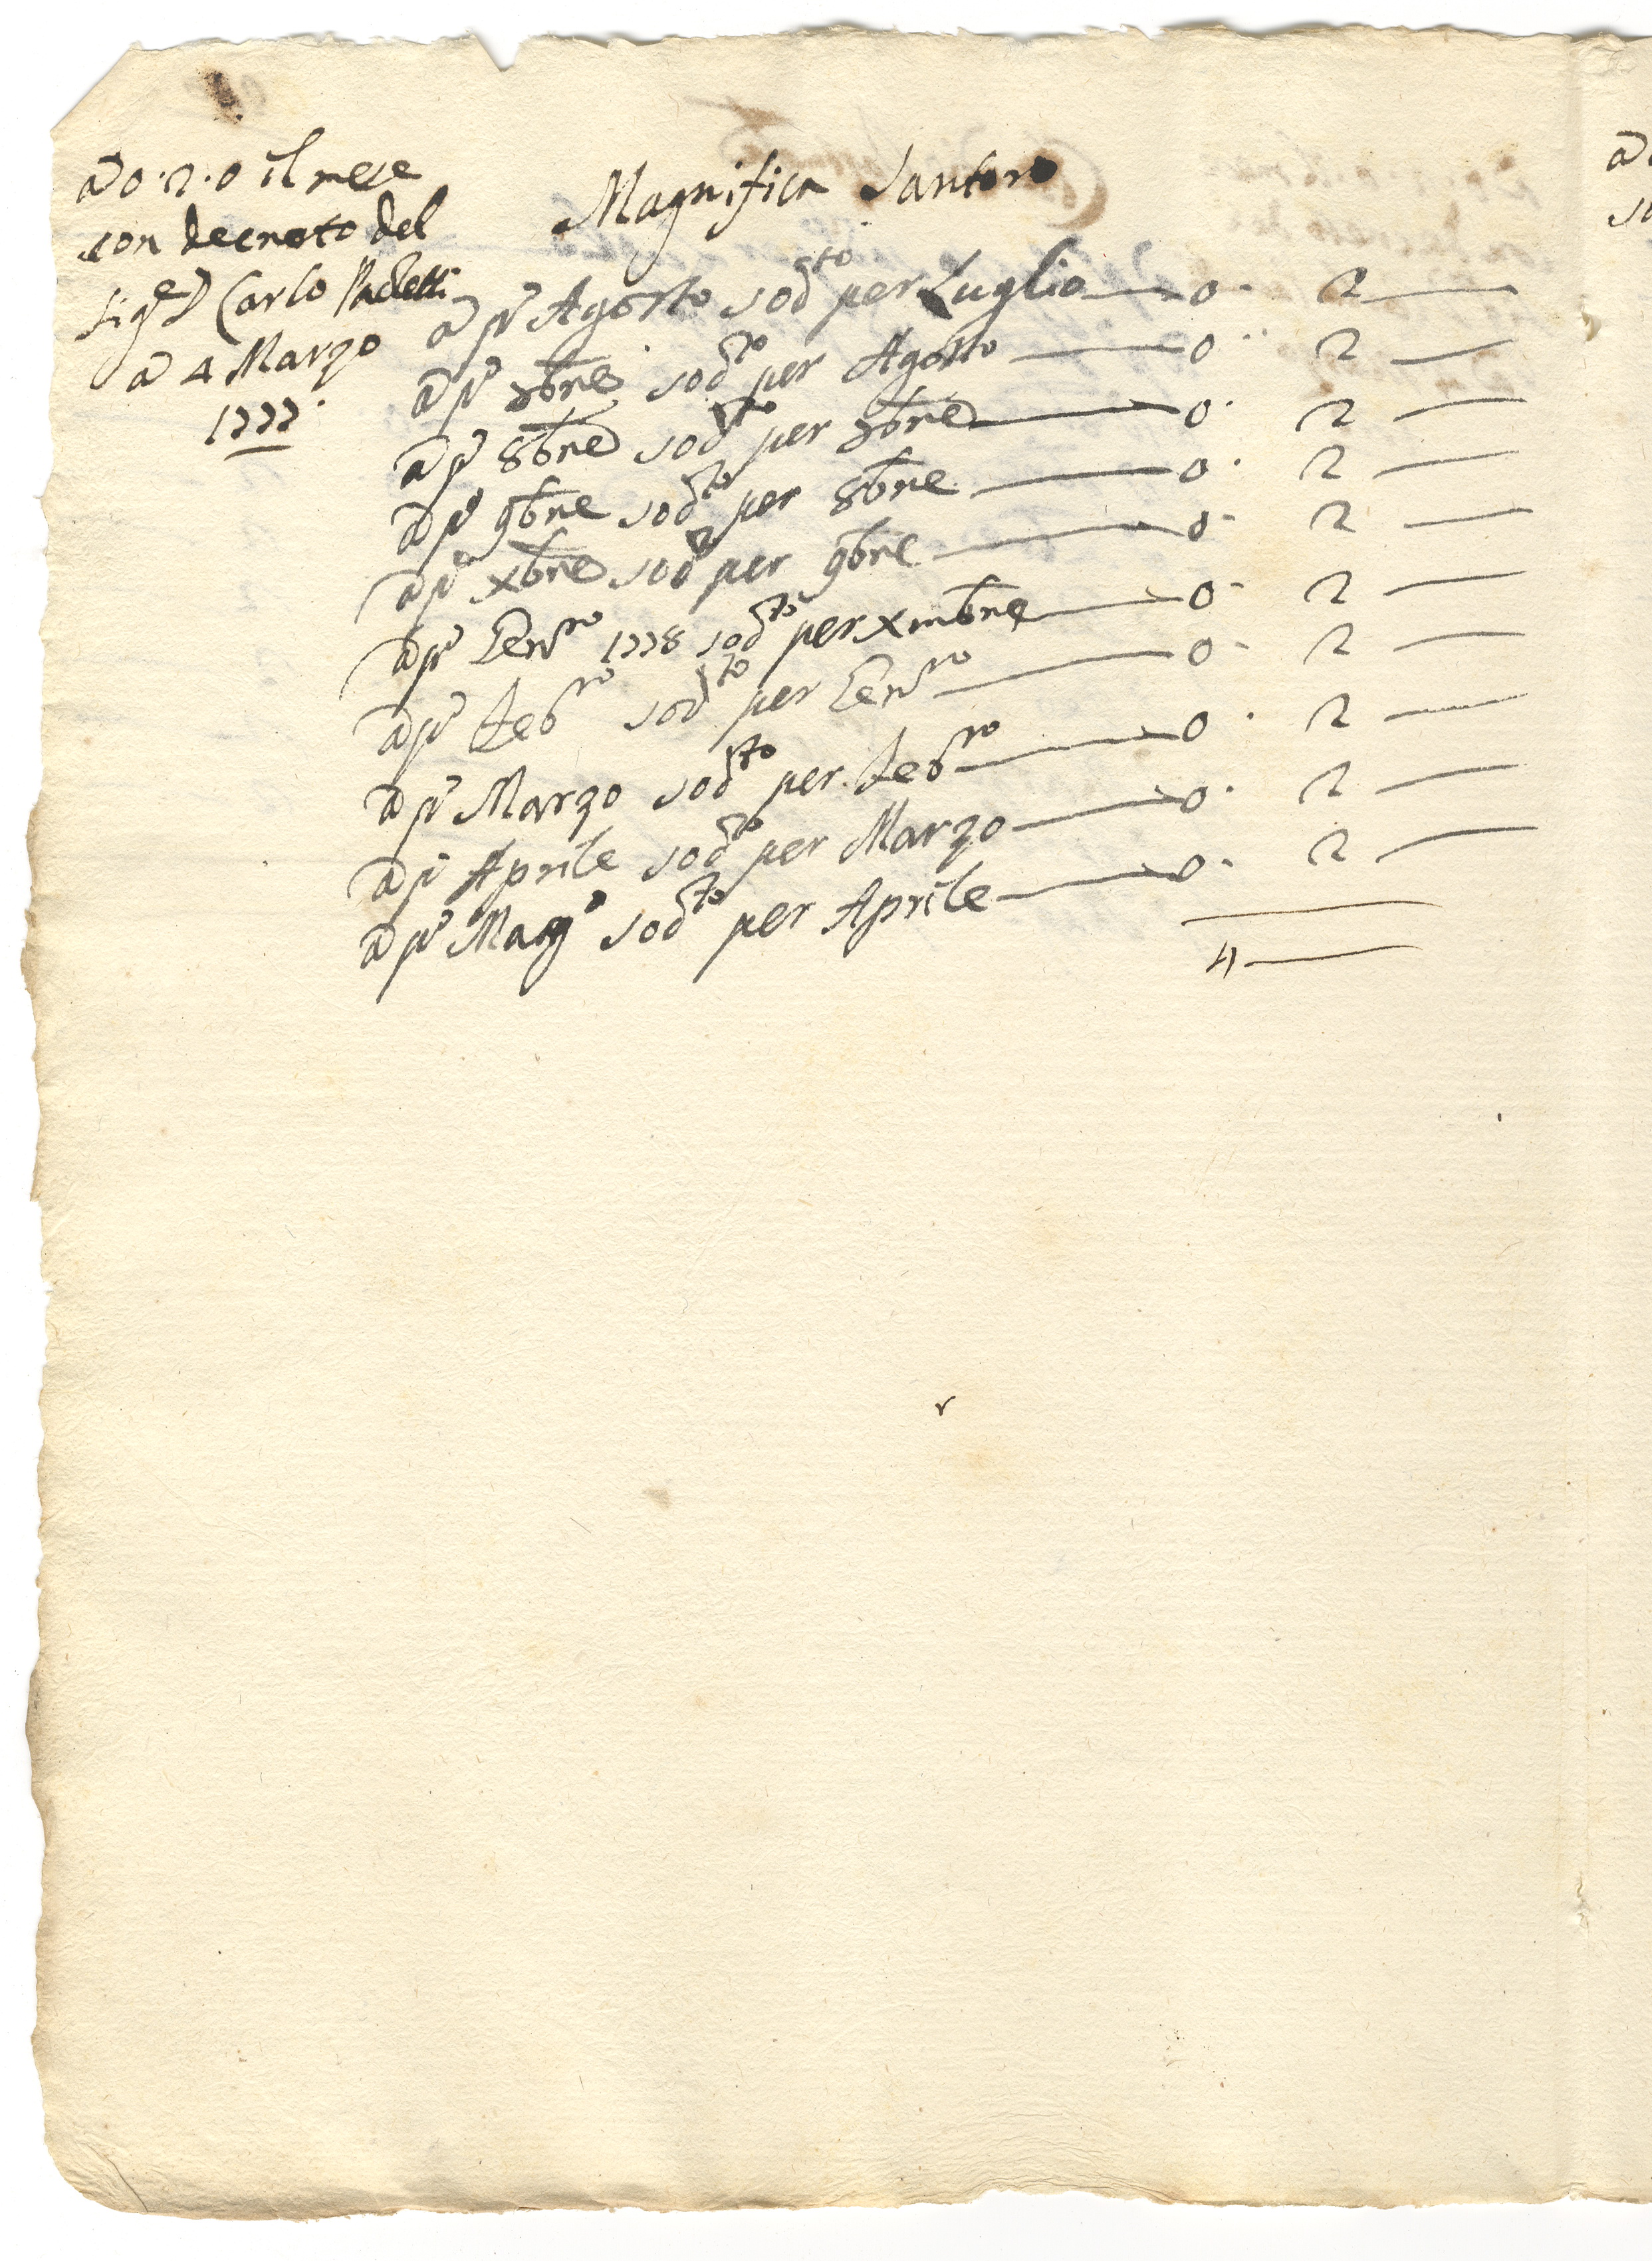 a 0.2.0 il mese
con decreto del
Sig.e D Carlo
a 4 Marzo
1777.
Magnifica Santoro
a p.o Agosto sod.to per Luglio — 0. 2 —
a p.o 7bre sod.to per Agosto — 0. 2 —
a p.o 8bre sod.to per 7bre — 0. 2 —
a p.o 9bre sod.to per 8bre — 0. 2 —
a p.o xbre sod.to per 9bre — 0. 2 —
a p.o Gen.ro 1778 sod.to per xmbre — 0. 2 —
a p.o Feb.ro sod.to per Gen.ro — 0. 2 —
a p.o Marzo sod.to per Feb.ro — 0. 2 —
a p.o Aprile sod.to per Marzo — 0. 2 —
a p.o Mag.o sod.to per Aprile — 0. 2 —
4 —